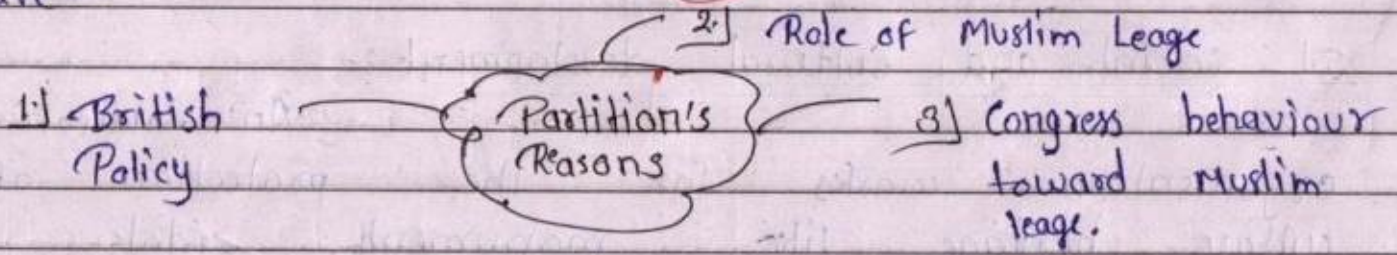 2.] Role of Muslim Leage
1.] British
Policy
Partition's
Reasons
3] Congress behaviour
toward Muslim
leage.